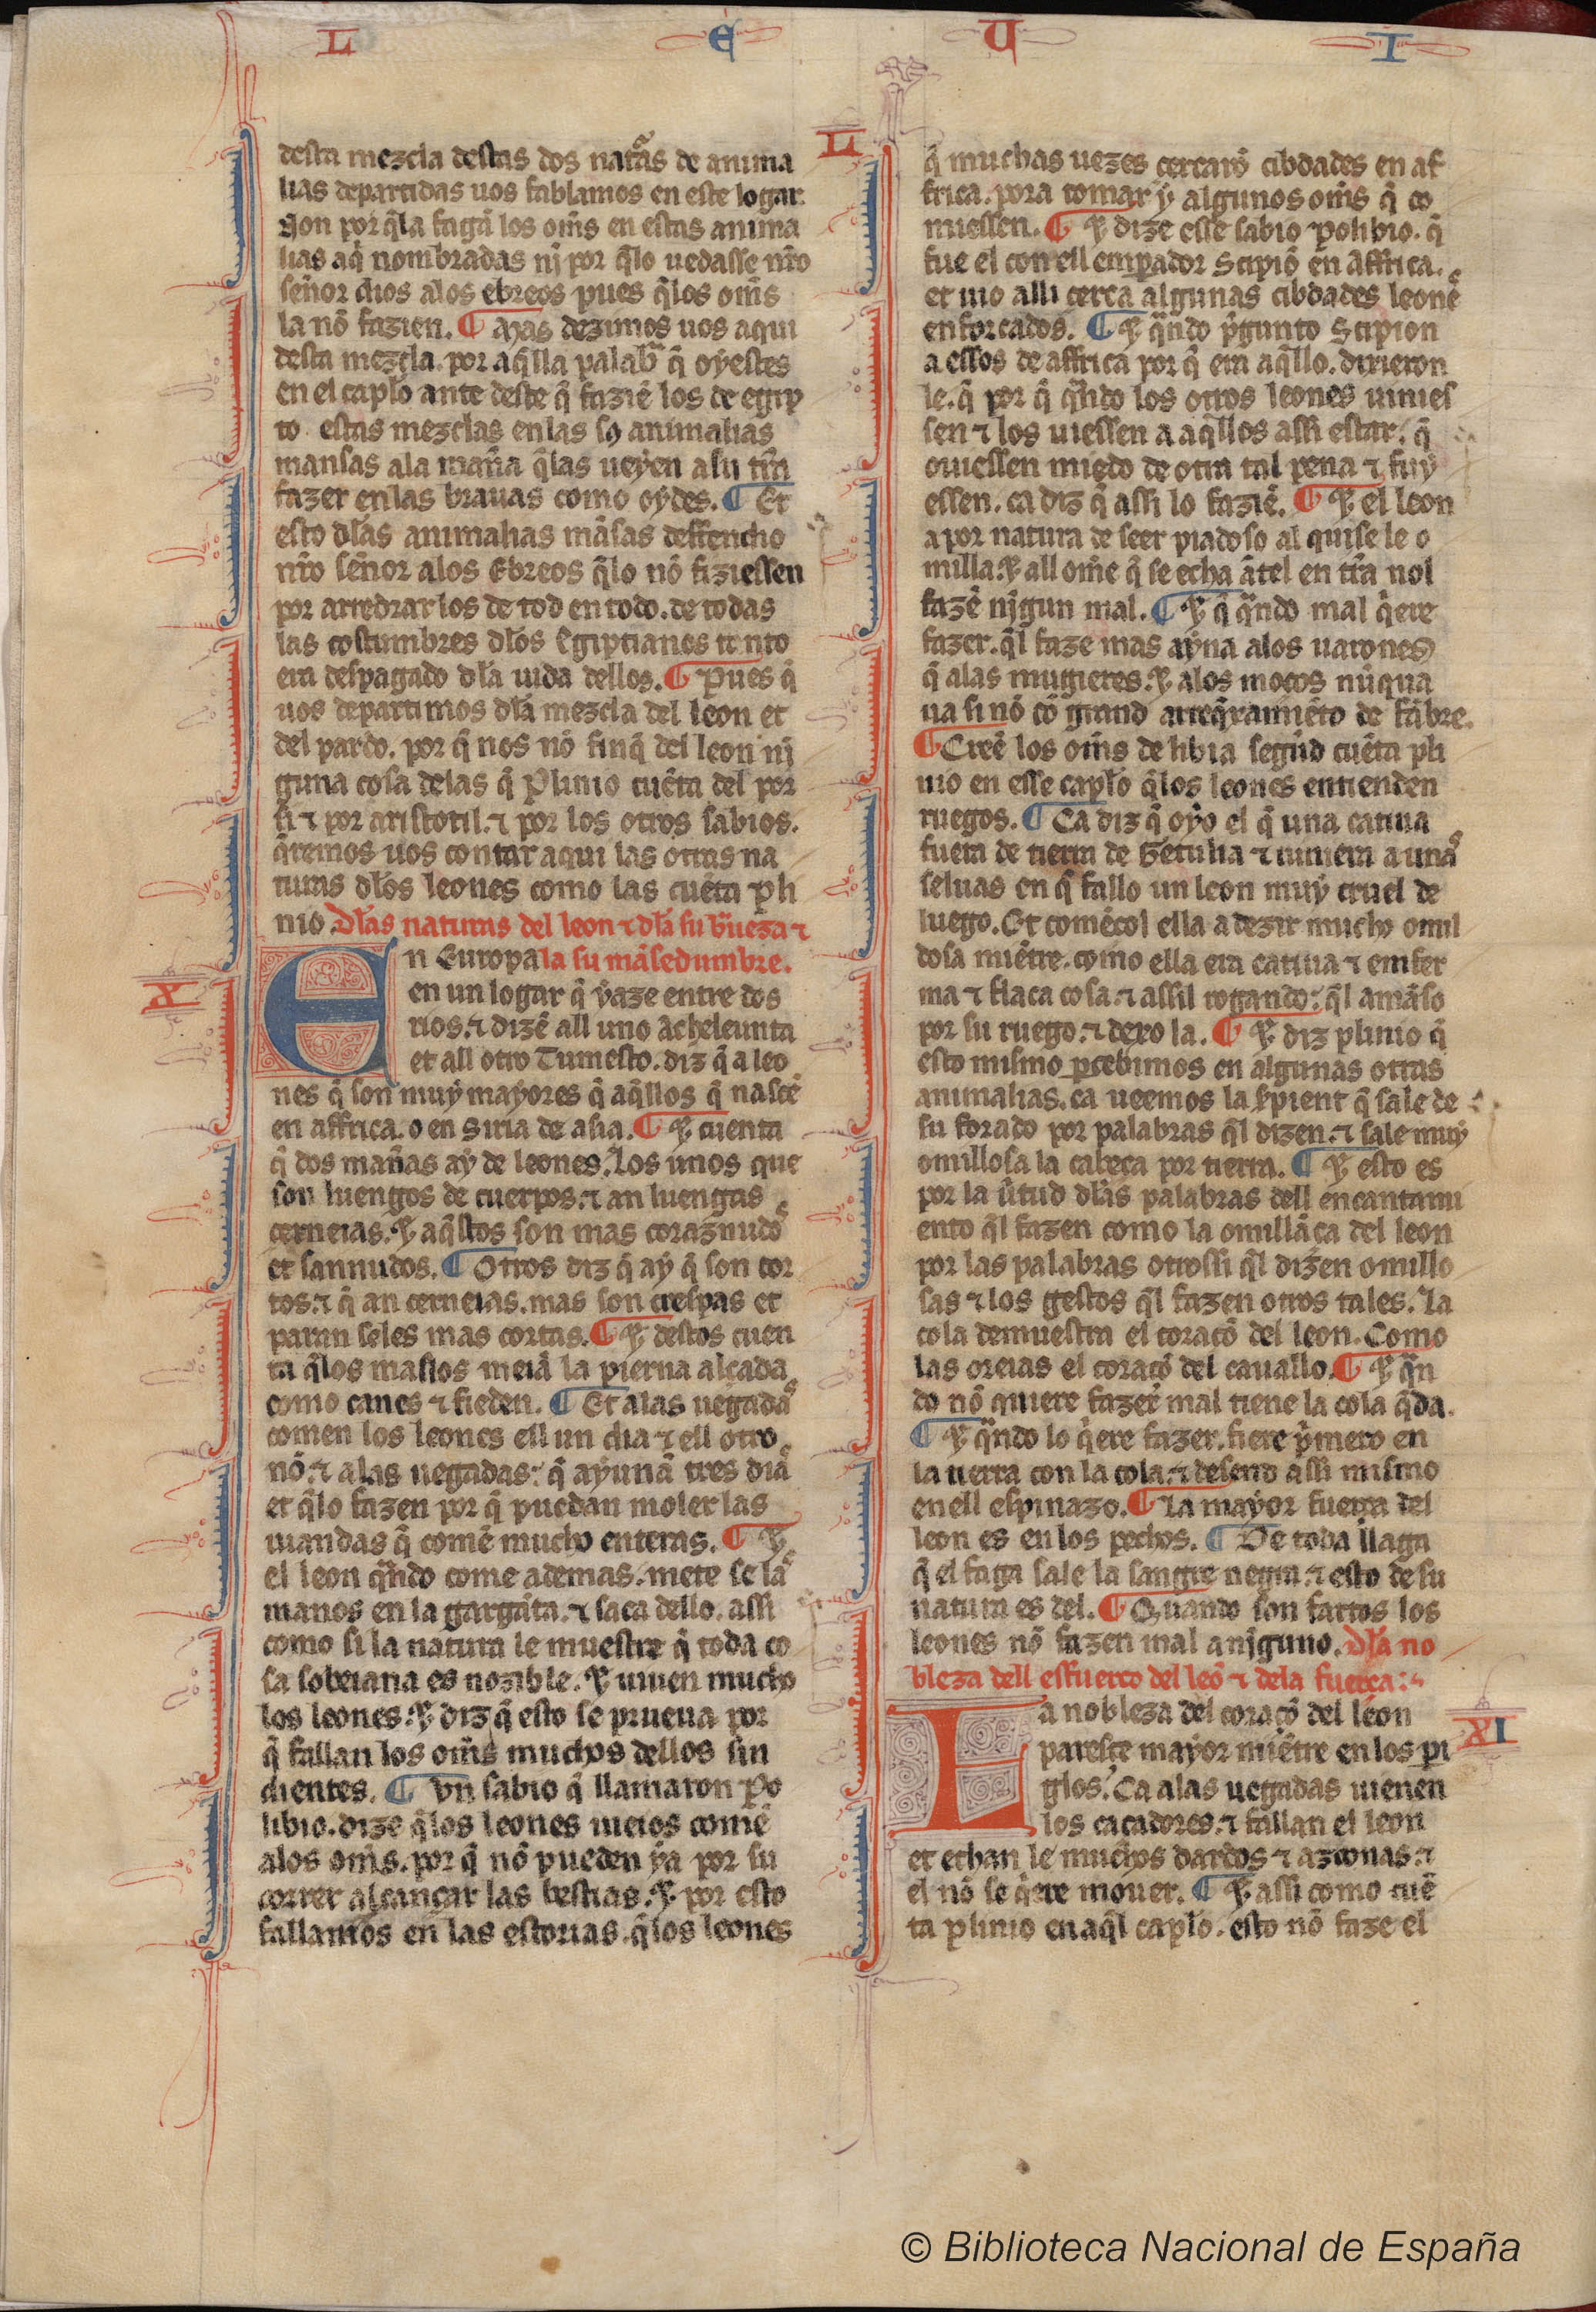 L E U I
desta mezcla destas dos naturas de anima
lias departidas uos fablamos en este logar.
Non por q̃la fagã los om̃s en estas anima
lias aq̃ nombradas nĩ por q̃lo uedasse nr̃o
señor dios alos ebreos pues q̃los om̃s
la nõ fazien. ¶ Mas dezimos uos aqui
desta mezcla. por aq̃lla palabra q̃ oyestes
en el capło ante deste q̃ fazíẽ los de egip
to estas mezclas enlas sꝯ animalias
mansas ala mañã q̃las ueyen a su tr̃ra
fazer enlas brauas como oydes. ¶ Et
esto dłas animalias mãsas deffendio
nr̃o señor alos Ebreos q̃lo nõ fiziessen
por arredrar los de tod en todo. de todas
las costumbres dłos Egiptianos tanto
era despagado dła uida dellos. ¶ Pues q̃
uos departimos dła mezcla del leon et
del pardo. por q̃ nos nõ finq̃ del leon nĩ
guna cosa delas q̃ Plinio cuẽta del por
si ⁊ por aristotil. ⁊ por los otros sabios.
q̃remos uos contar aqui las otras na
turas dłos leones como las cuẽta Pli
nio. Dłas naturas del leon ⁊ dła su b̃ueza ⁊
En Europa la su mãsedumbre.
X
en un logar q̃ yaze entre dos
rios. ⁊ dizẽ all uno acheleunta
et all otro Tumesto. diz q̃ a leo
nes q̃ son muy mayores q̃ aq̃llos q̃ nascẽ
en affrica. o en Siria de asia. ¶ Ꝩ cuenta
q̃ dos mañas ay de leones. Los unos que
son luengos de cuerpos. ⁊ an luengas
cerneias. Ꝩ aq̃stos son mas coraznudos
et sannudos. ¶ Otros diz q̃ ay q̃ son cor
tos. ⁊ q̃ an cerneias. mas son crespas et
paran seles mas cortas. ¶ Ꝩ destos cuen
ta q̃los maslos meiã la pierna alçada
como canes ⁊ fieden. ¶ Et alas uegadas
comen los leones ell un dia ⁊ ell otro
nõ. ⁊ alas uegadas: q̃ ayunã tres dias
et q̃lo fazen por q̃ puedan moler las
uiandas q̃ comẽ mucho enteras. ¶ Ꝩ
el leon q̃ndo come ademas. mete se las
manos en la garganta. ⁊ saca dello. assi
como si la natura le muestre q̃ toda co
sa sobeiana es nozible. Ꝩ uiuen mucho
los leones. Ꝩ diz q̃ esto se prueua por
q̃ fallan los om̃s muchos dellos sin
dientes. ¶ Un sabio q̃ llamaron Po
libio. dize q̃los leones uieios comẽ
alos om̃s. por q̃ nõ pueden ya por su
correr alcançar las bestias. Ꝩ por esto
fallamos en las estorias. q̃los leones
L
q̃ muchas uezes cercarõ cibdades en af
frica. pora tomar y algunos om̃s q̃ co
miessen. ¶ Ꝩ dize esse sabio Polibio. q̃
fue el con ell emperador Scipiõ en Affrica.
et uio alli cerca algunas cibdades leones
enforcados. ¶ Ꝩ q̃ndo p̃gunto Scipion
a essos de affrica por q̃ era aq̃llo. dixieron
le. q̃ por q̃ q̃ndo los otros leones uinies
sen ⁊ los uiessen a aq̃llos assi estar. q̃
ouiessen miedo de otra tal pena ⁊ fuy
essen. ca diz q̃ assi lo fazíẽ. ¶ Ꝩ el leon
a por natura de seer piadoso al quise le o
milla. Ꝩ all om̃e q̃ se echa ãtel en tr̃ra nol
fazẽ nĩgun mal. ¶ Ꝩ q̃ q̃ndo mal q̃ere
fazer. q̃l faze mas ayna alos uarones
q̃ alas mugieres. Ꝩ alos moços nũqua
ua si nõ cõ grand arreq̃xamiẽto de fãbre.
¶ Creẽ los om̃s de libia segũd cuẽta pli
nio en esse capło q̃los leones entienden
ruegos. ¶ Ca diz q̃ oyo el q̃ una catiua
fuera de tierra de Getulia ⁊ tuuiera a unas
seluas en q̃ fallo un leon muy cruel de
luego. Et comẽçol ella a dezir mucho omil
dosa miẽtre. como ella era catiua ⁊ enfer
ma ⁊ flaca cosa. ⁊ assil rogando: q̃l amãso
por su ruego. ⁊ dexo la. ¶ Ꝩ diz plinio q̃
esto mismo p̱cebimos en algunas otras
animalias. ca ueemos la s̃pient q̃ sale de
su forado por palabras q̃l dizen. ⁊ sale muy
omillosa la cabeça por tierra. ¶ Ꝩ esto es
por la ũtud dłas palabras dell encantami
ento q̃l fazen como la omillãça del leon
por las palabras otrossi q̃l dizen omillo
sas ⁊ los gestos q̃l fazen otros tales. La
cola demuestra el coraçõ del leon. Como
las oreias el coraçõ del cauallo. ¶ Ꝩ q̃n
do nõ quiere fazer mal tiene la cola q̃da.
¶ Ꝩ q̃ndo lo q̃ere fazer. fiere p̃mero en
la tierra con la cola. ⁊ desend assi mismo
enell espinazo. ¶ La mayor fuerça del
leon es en los pechos. ¶ De toda llaga
q̃ el faga sale la sangre negra. ⁊ esto de su
natura es del. ¶ Quando son fartos los
leones nõ fazen mal a nĩguno. Dła no
bleza dell esfuerço del leõ ⁊ dela fuerça:
La nobleza del coraçõ del leon
XI
paresce mayor miẽtre en los pi
glos. Ca alas uegadas uienen
los caçadores. ⁊ fallan el leon
et echan le muchos dardos ⁊ azconas. ⁊
el nõ se q̃ere mouer. ¶ Ꝩ assi como cuẽ
ta plinio en aq̃l capło. esto nõ faze el
© Biblioteca Nacional de España